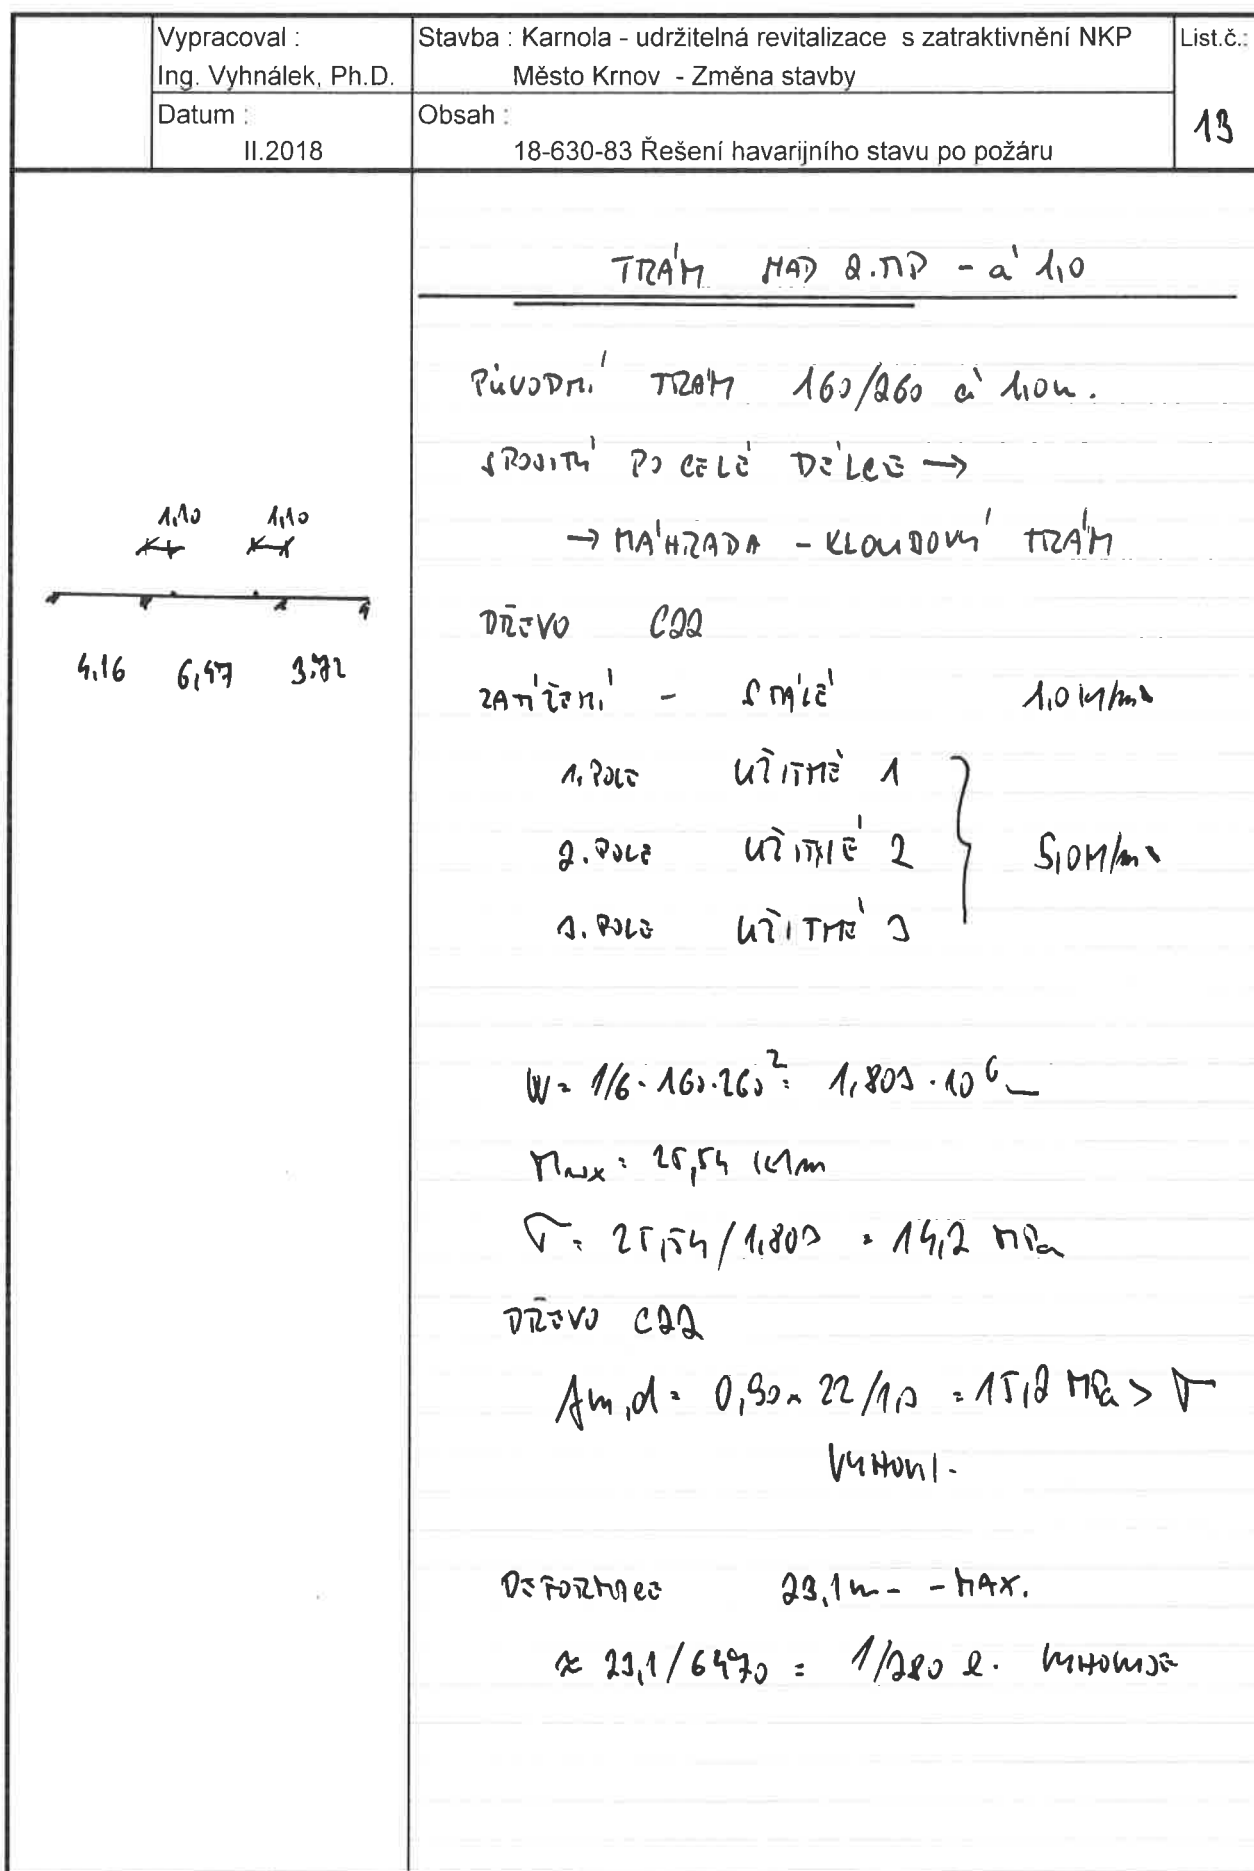 Vypracoval :
Ing. Vyhnálek, Ph.D.
Stavba : Karnola - udržitelná revitalizace s zatraktivnění NKP
Město Krnov - Změna stavby
List.č.:
13
Datum :
II.2018
Obsah :
18-630-83 Řešení havarijního stavu po požáru
TRÁM NAD 2.NP - á 1,0
PŮVODNÍ TRÁM 160/260 á 1,0m.
SPOJITÝ PO CELÉ DÉLCE →
→ NÁHRADA - KLOUBOVÝ TRÁM
1,10 1,10
4,16 6,47 3,72
DŘEVO C22
ZATÍŽENÍ - STÁLÉ 1,0 kN/m²
1. POLE UŽITNÉ 1
2. POLE UŽITNÉ 2 5,0 kN/m²
3. POLE UŽITNÉ 3
W = 1/6 · 160·260² = 1,803 · 10⁶
Mmax = 25,54 kNm
σ = 25,54/1,803 = 14,2 MPa
DŘEVO C22
fm,d = 0,90 × 22/1,3 = 15,2 MPa > σ
VYHOVÍ.
DEFORMACE 23,1mm - MAX.
≈ 23,1/6470 = 1/280 l. VYHOVUJE